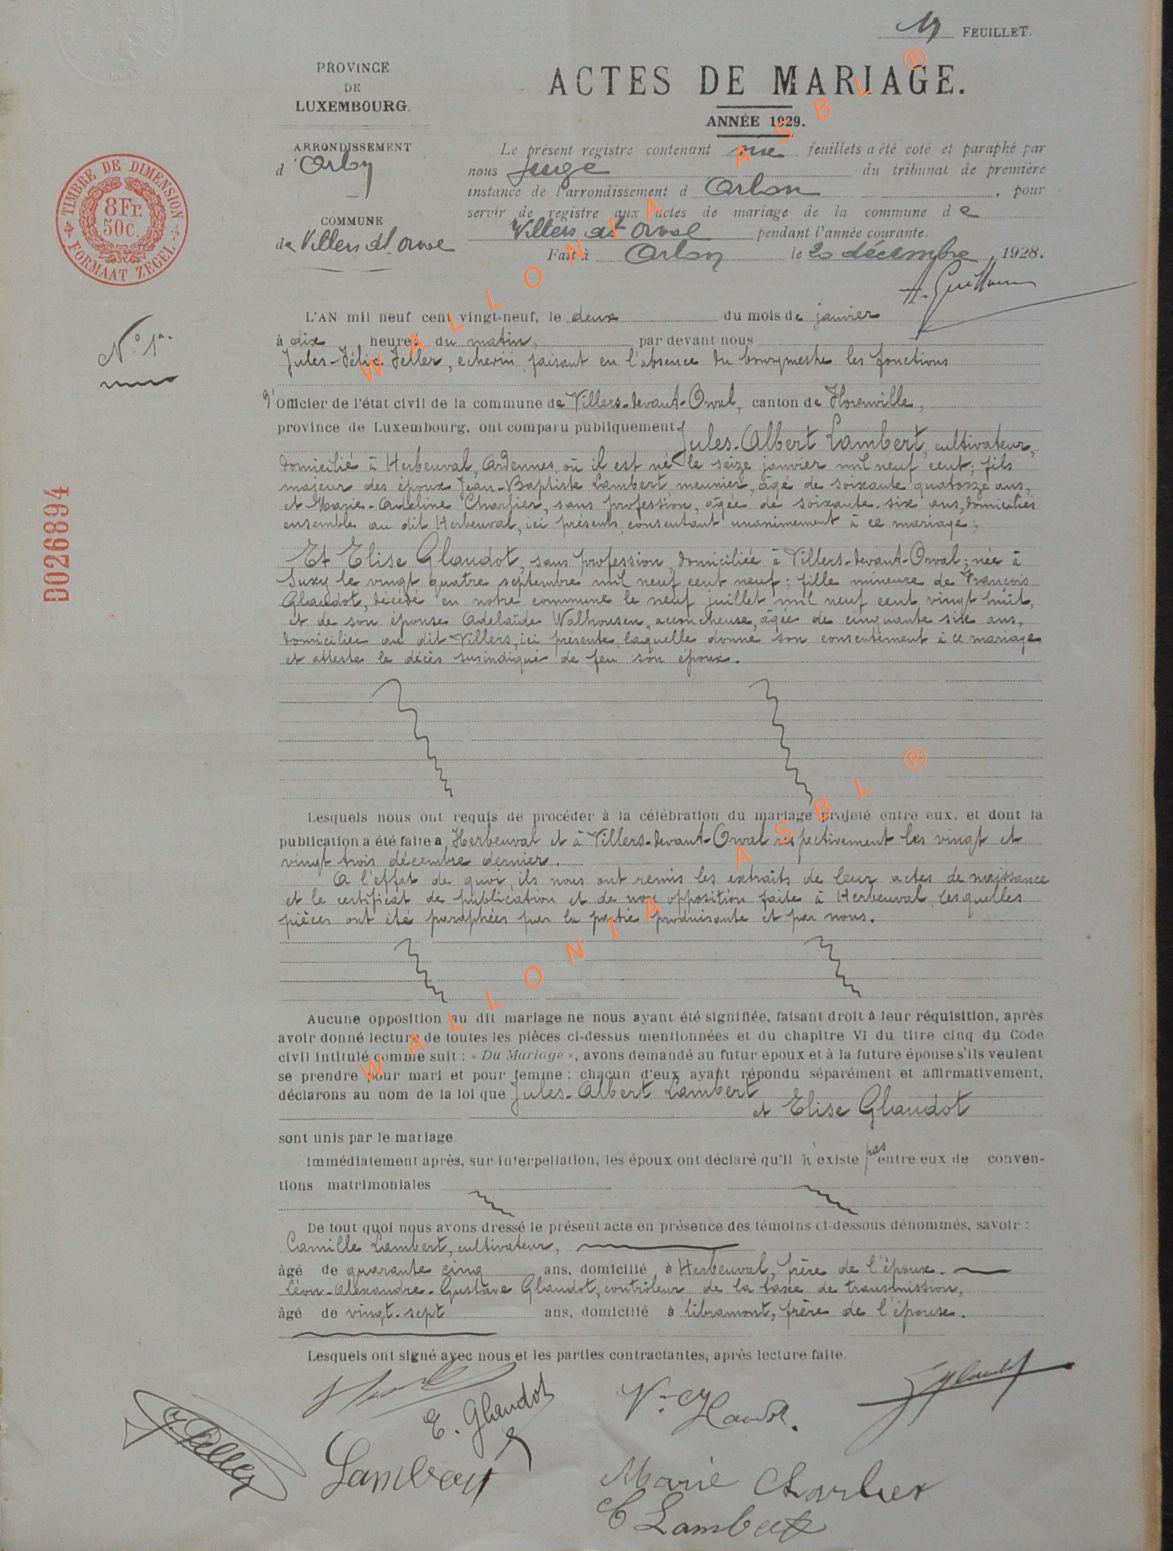 FEUILLET.
PROVINCE
DE
LUXEMBOURG.
ACTES DE MARIAGE.
ANNÉE 1929.
ARRONDISSEMENT
d'Arlon
Le présent registre contenant six feuillets a été coté et paraphé par
nous Juge du tribunal de première
instance de l'arrondissement d Arlon, pour
servir de registre aux actes de mariage de la commune de
Villers dt Orval pendant l'année courante.
Fait à Arlon le 20 décembre 1928.
COMMUNE
de Villers dt Orval
TIMBRE DE DIMENSION
8Fr.
50c.
FORMAAT ZEGEL
A. Guillaume
N° 1er
L'AN mil neuf cent vingt-neuf, le deux du mois de janvier
à dix heures du matin, par devant nous
Jules-Félix Feller, échevin faisant en l'absence du bourgmestre les fonctions
d'Officier de l'état civil de la commune de Villers-devant-Orval, canton de Florenville,
province de Luxembourg, ont comparu publiquement Jules-Albert Lambert, cultivateur,
domicilié à Herbeuval, Ardennes, où il est né le seize janvier mil neuf cent; fils
majeur des époux Jean-Baptiste Lambert meunier, âgé de soixante quatorze ans,
et Marie-Adeline Charlier, sans profession, âgée de soixante-six ans, domiciliés
ensemble au dit Herbeuval, ici présents, consentant unanimement à ce mariage;
Et Elise Glaudot, sans profession, domiciliée à Villers-devant-Orval; née à
Suxy le vingt quatre septembre mil neuf cent neuf; fille mineure de François
Glaudot, décédé en notre commune le neuf juillet mil neuf cent vingt huit,
et de son épouse Adelaïde Walhousen, accoucheuse, âgée de cinquante six ans,
domiciliée au dit Villers, ici présente, laquelle donne son consentement à ce mariage
et atteste le décès susindiqué de feu son époux.
D026894
Lesquels nous ont requis de procéder à la célébration du mariage projeté entre eux, et dont la
publication a été faite à Herbeuval et à Villers-devant-Orval respectivement les vingt et
vingt trois décembre dernier.
A l'effet de quoi, ils nous ont remis les extraits de leur actes de naissance
et le certificat de publication et de non opposition faite à Herbeuval, lesquelles
pièces ont été paraphées par la partie produisante et par nous.
Aucune opposition au dit mariage ne nous ayant été signifiée, faisant droit à leur réquisition, après
avoir donné lecture de toutes les pièces ci-dessus mentionnées et du chapitre VI du titre cinq du Code
civil intitulé comme suit : « Du Mariage », avons demandé au futur époux et à la future épouse s'ils veulent
se prendre pour mari et pour femme : chacun d'eux ayant répondu séparément et affirmativement,
déclarons au nom de la loi que Jules-Albert Lambert
et Elise Glaudot
sont unis par le mariage
Immédiatement après, sur interpellation, les époux ont déclaré qu'il n'existe pas entre eux de conven-
tions matrimoniales
De tout quoi nous avons dressé le présent acte en présence des témoins ci-dessous dénommés, savoir :
Camille Lambert, cultivateur,
âgé de quarante cinq ans, domicilié à Herbeuval, frère de l'époux.
Léon-Alexandre-Gustave Glaudot, contrôleur de la taxe de transmission,
âgé de vingt-sept ans, domicilié à Libramont, frère de l'épouse.
Lesquels ont signé avec nous et les parties contractantes, après lecture faite.
E. Glaudot
J. Feller
Lambert
Marie Charlier
C Lambert
WALLONIA ASBL ®
WALLONIA ASBL ®